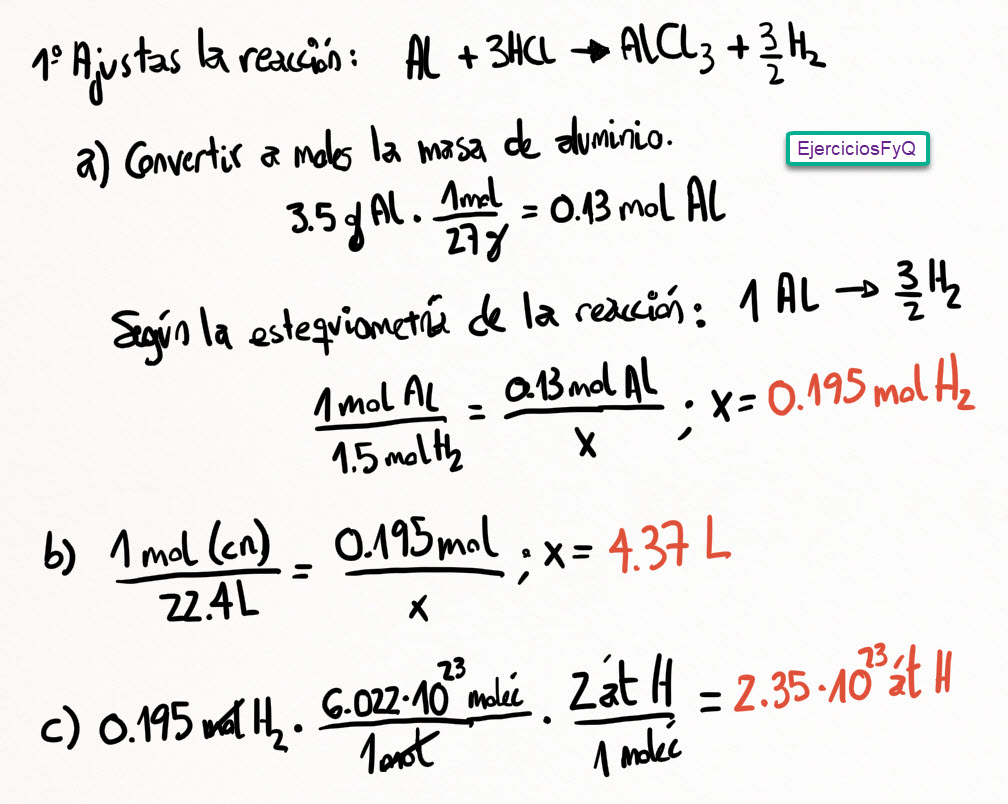 1º Ajustas la reacción: Al + 3HCl → AlCl₃ + 3/2 H₂
a) Convertir a moles la masa de aluminio.
EjerciciosFyQ
3.5 g Al · 1mol/27g = 0.13 mol Al
Según la estequiometría de la reacción: 1 Al → 3/2 H₂
1 mol Al/1.5 mol H₂ = 0.13 mol Al/x ; x = 0.195 mol H₂
b) 1 mol (cn)/22.4 L = 0.195 mol/x ; x = 4.37 L
c) 0.195 mol H₂ · 6.022·10²³ moléc/1 mol · 2 át H/1 moléc = 2.35·10²³ át H